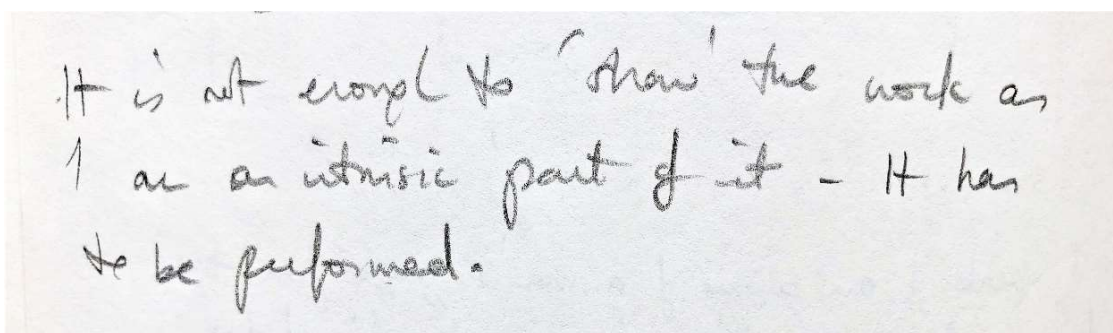 It is not enough to 'show' the work as
I am an intrinsic part of it - It has
to be performed.